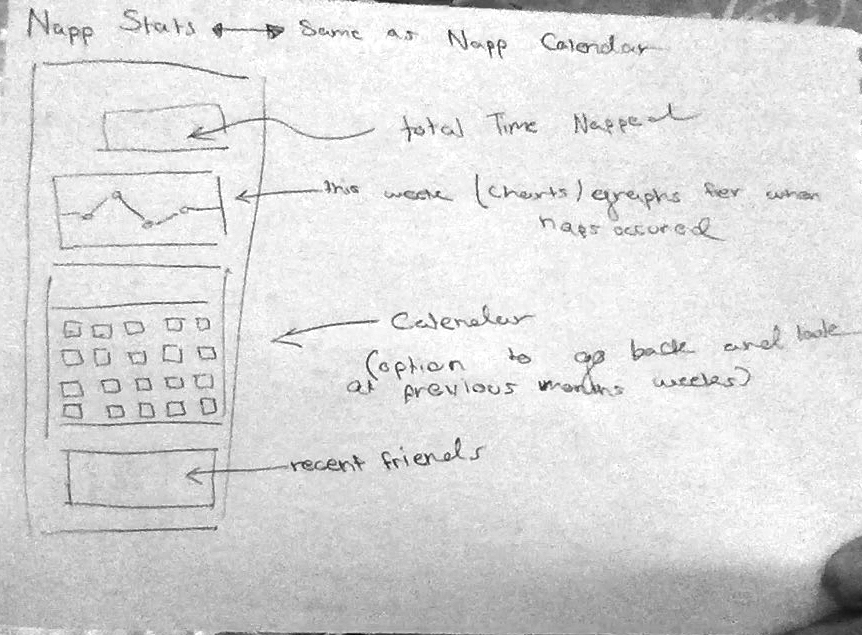 Napp Stats ↔ Same as Napp Calendar
total Time Napped
this week (charts) graphs for when
naps occured
Calendar
(option to go back and look
at previous months weeks)
recent friends